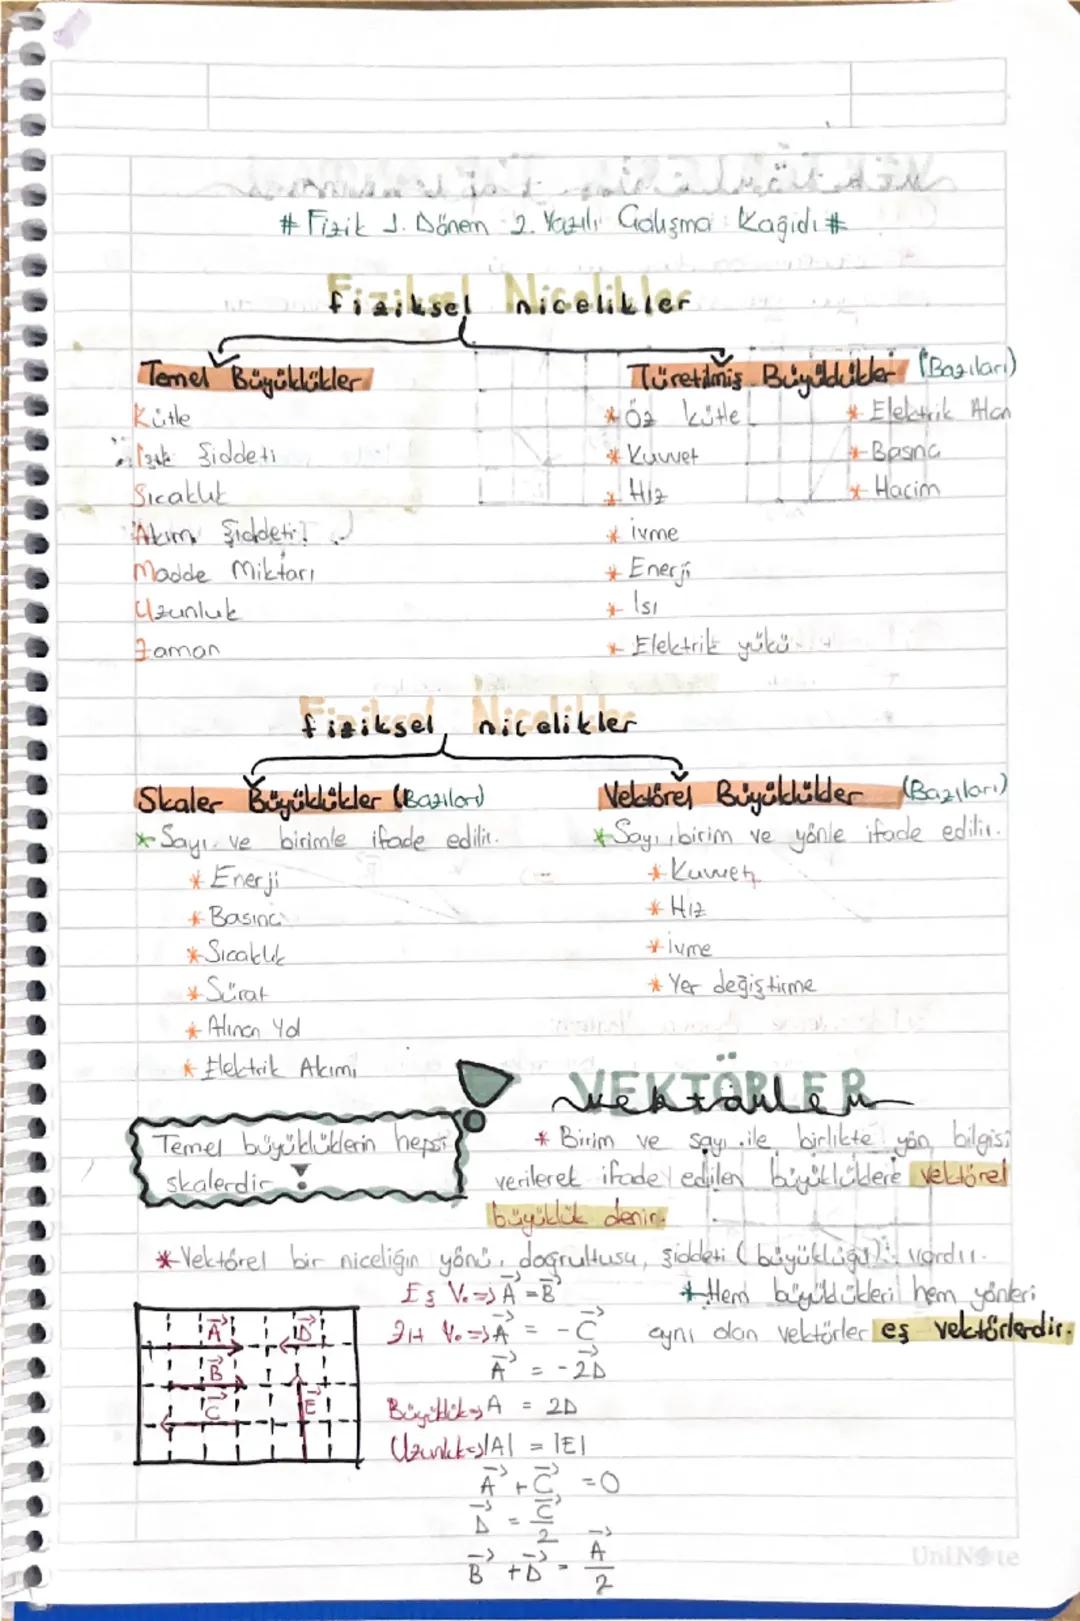 # Fizik 1. Dönem 2. Yazılı Çalışma Kağıdı #
Fiziksel Nicelikler
Temel Büyüklükler
Kütle
Işık Şiddeti
Sıcaklık
Akım Şiddeti
Madde Miktarı
Uzunluk
Zaman
Türetilmiş Büyüklükler (Bazıları)
* Öz kütle
* Kuvvet
* Hız
* ivme
* Enerji
* Isı
* Elektrik yükü
* Elektrik Alan
* Basınç
* Hacim
Fiziksel Nicelikler
Skaler Büyüklükler (Bazıları)
* Sayı ve birimle ifade edilir.
* Enerji
* Basınç
* Sıcaklık
* Sürat
* Alınan Yol
* Elektrik Akımı
Vektörel Büyüklükler (Bazıları)
* Sayı, birim ve yönle ifade edilir.
* Kuvvet
* Hız
* ivme
* Yer değiştirme
Temel büyüklüklerin hepsi
skalerdir !
VEKTÖRLER
* Birim ve sayı ile birlikte yön bilgisi
verilerek ifade edilen büyüklüklere vektörel
büyüklük denir.
* Vektörel bir niceliğin yönü, doğrultusu, şiddeti (büyüklüğü) vardır.
* Hem büyüklükleri hem yönleri
aynı olan vektörler eş vektörlerdir.
A⃗ D⃗
B⃗
C⃗ E⃗
Eş V. => A⃗ = B⃗
Zıt V. => A⃗ = -C⃗
A⃗ = -2D⃗
Büyüklük => A = 2D
Uzunluk => |A| = |E|
A⃗ + C⃗ = 0
D⃗ = C⃗/2
B⃗ + D⃗ = A⃗/2
UniNote